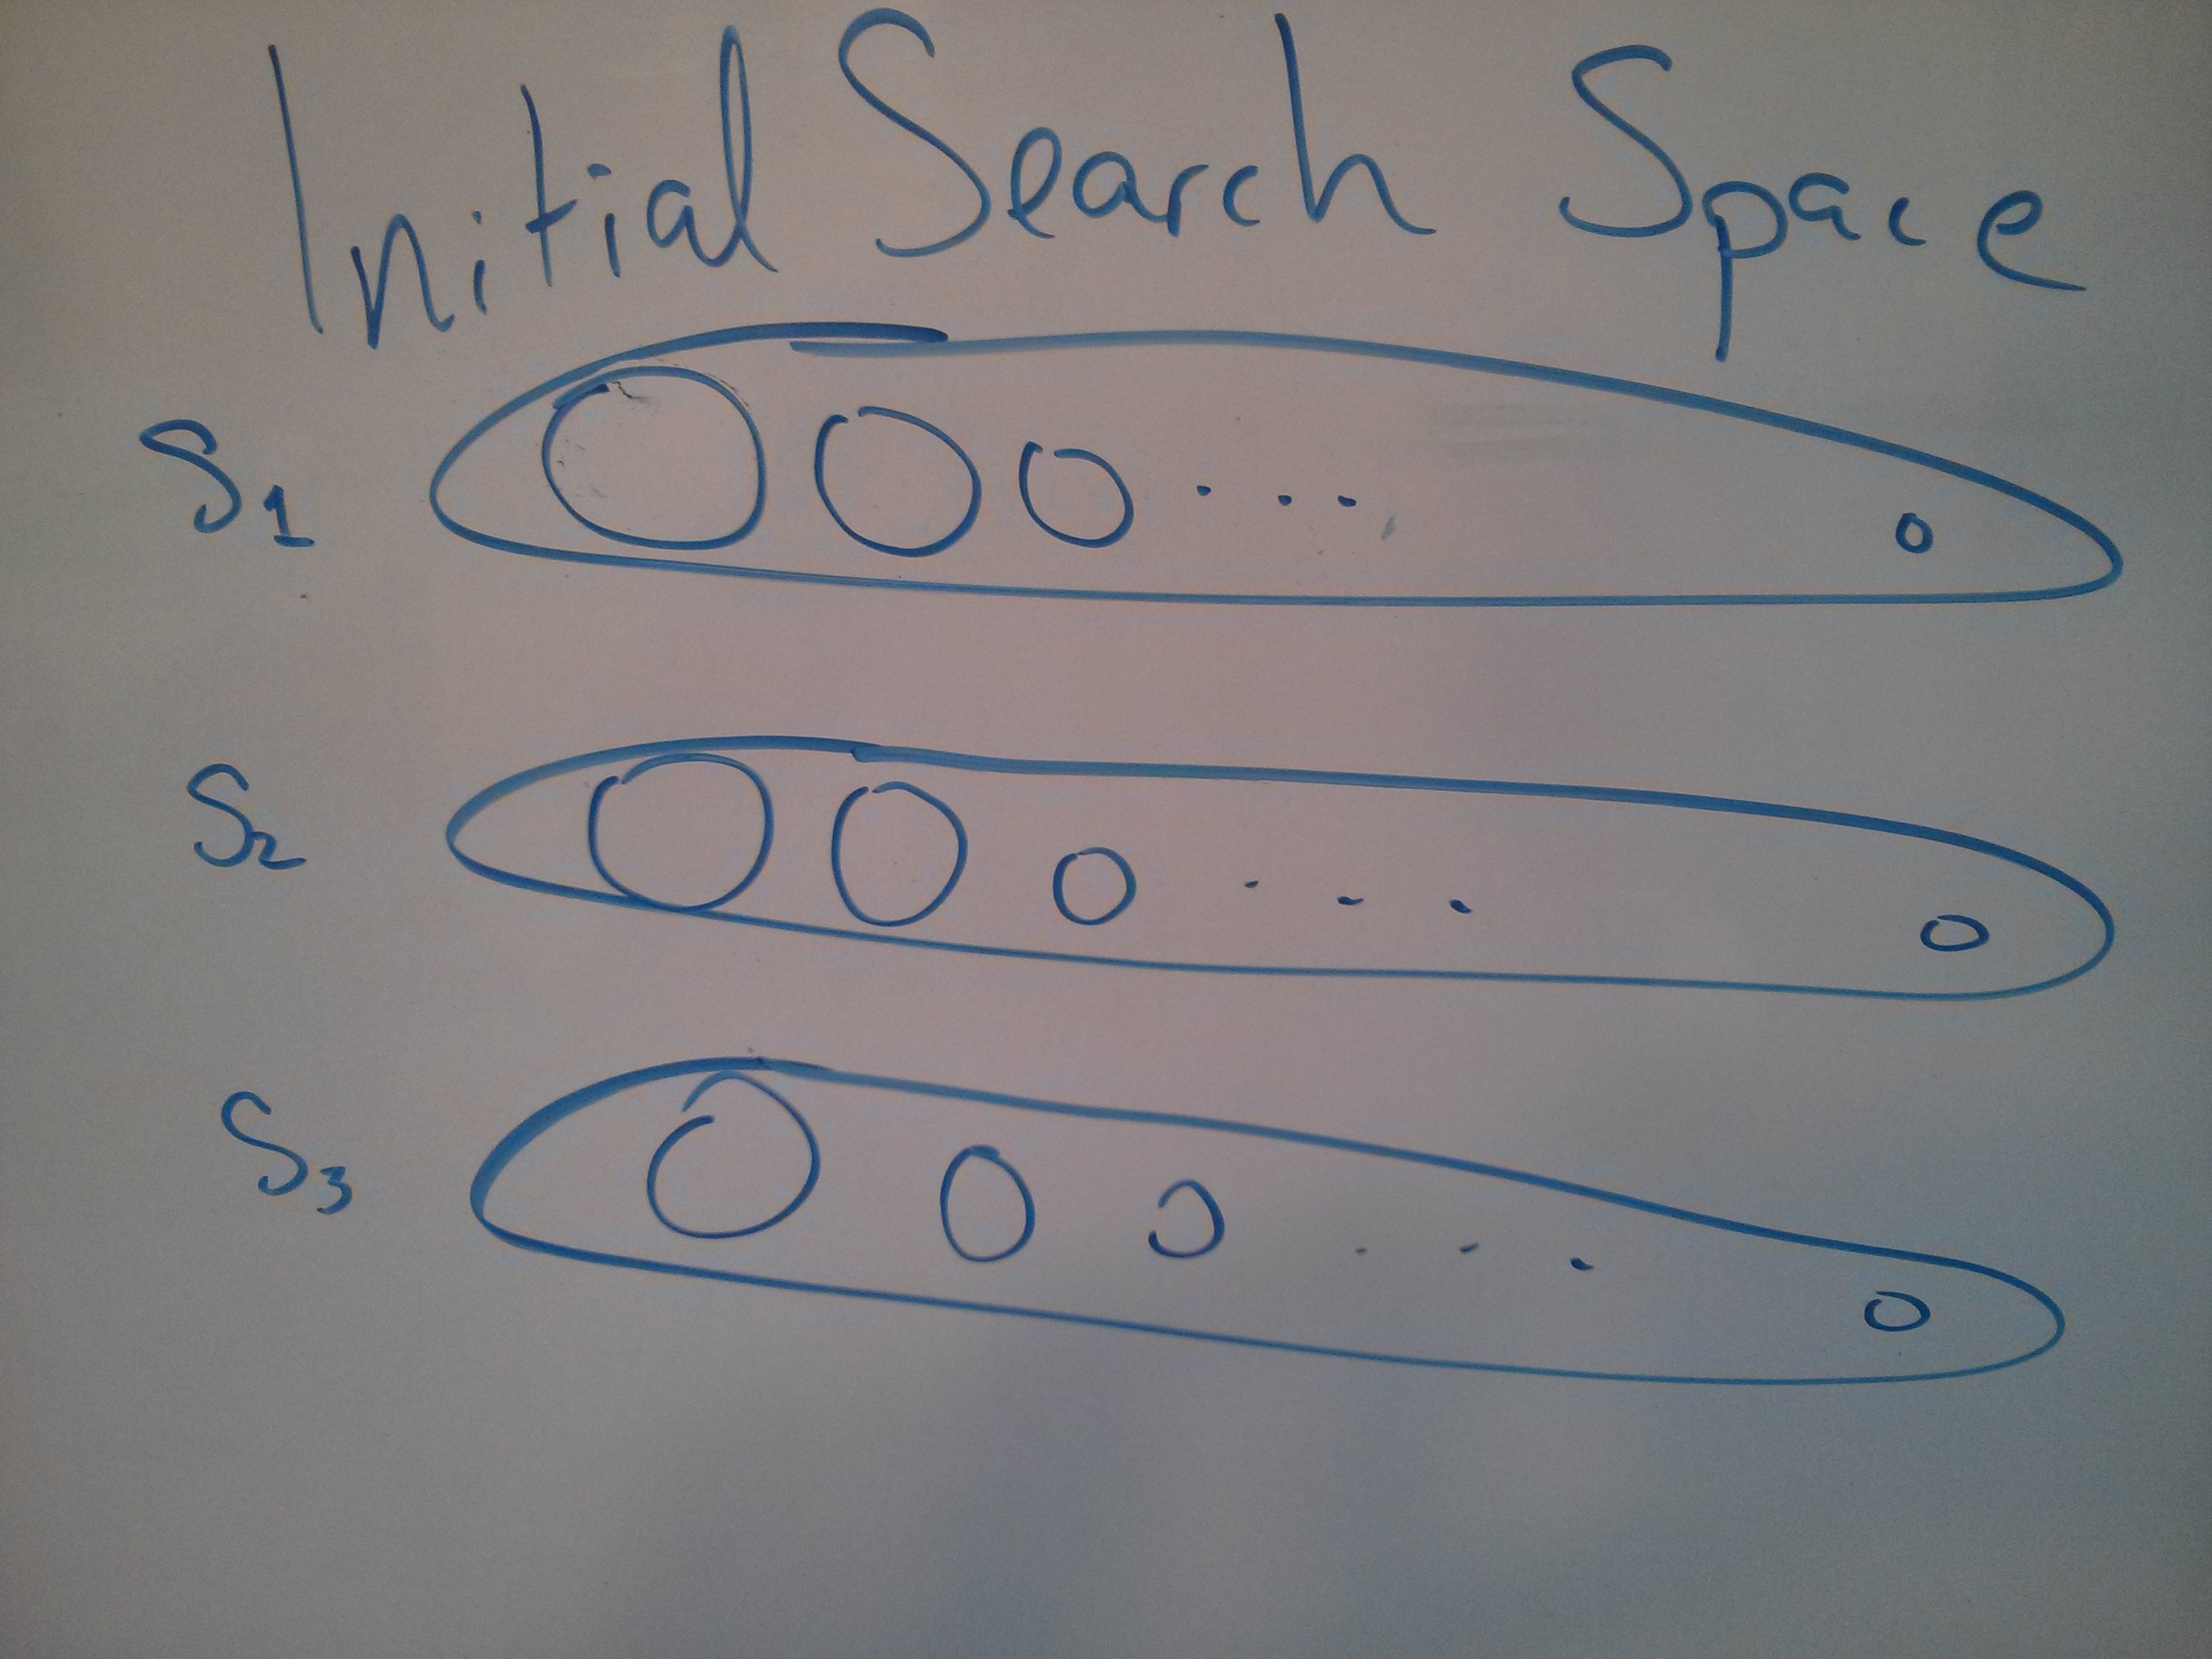 Initial Search Space
S1
S2
S3